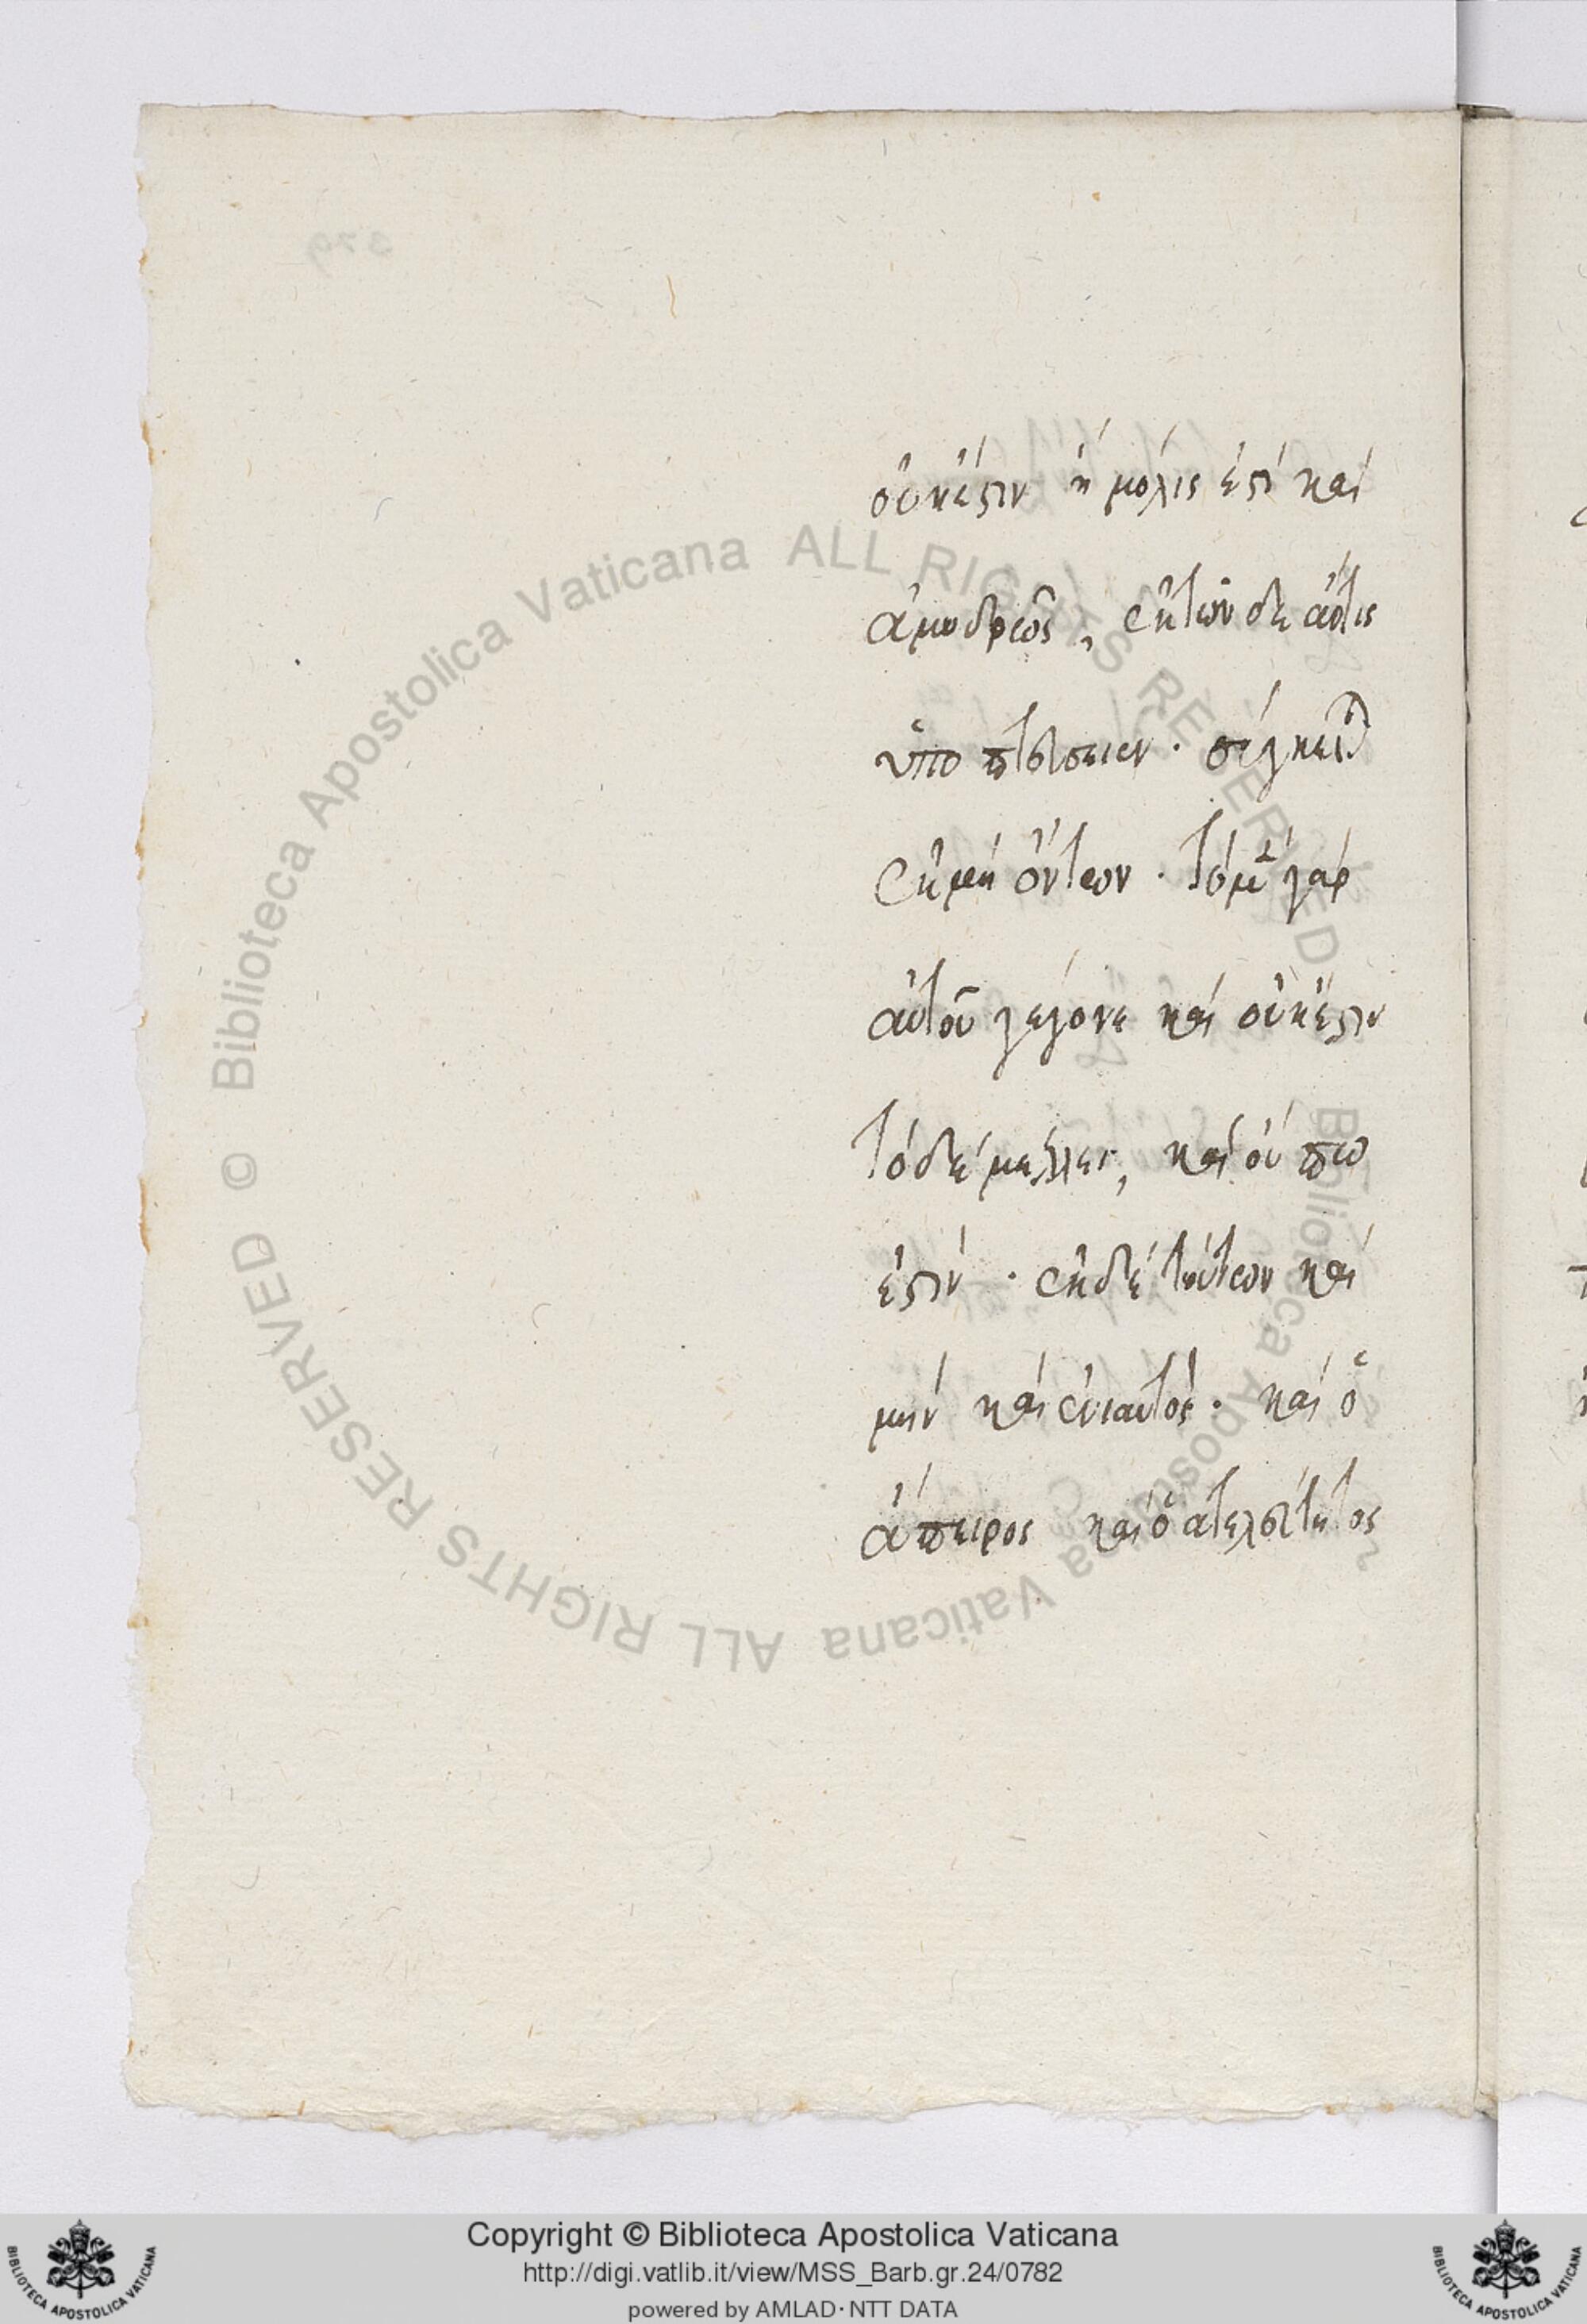 οὐκ ἔστιν ἢ μόλις ἐστὶ καὶ
ἀμυδρῶς, ἐκ τῶνδε ἄν τις
ὑποπτεύσειεν. σύγκειται
ἐκ μὴ ὄντων. τὸ μὲν γὰρ
αὐτοῦ γέγονε καὶ οὐκ ἔστιν
τὸ δὲ μέλλει, καὶ οὔπω
ἐστίν. ἐκ δὲ τούτων καὶ
μὴν καὶ ἐνιαυτὸς. καὶ ὁ
ἄπειρος καὶ ὁ ἀτελεύτητος
Copyright © Biblioteca Apostolica Vaticana
http://digi.vatlib.it/view/MSS_Barb.gr.24/0782
powered by AMLAD·NTT DATA
BIBLIOTECA APOSTOLICA VATICANA
BIBLIOTECA APOSTOLICA VATICANA
© Biblioteca Apostolica Vaticana ALL RIGHTS RESERVED
Biblioteca Apostolica Vaticana ALL RIGHTS RESERVED